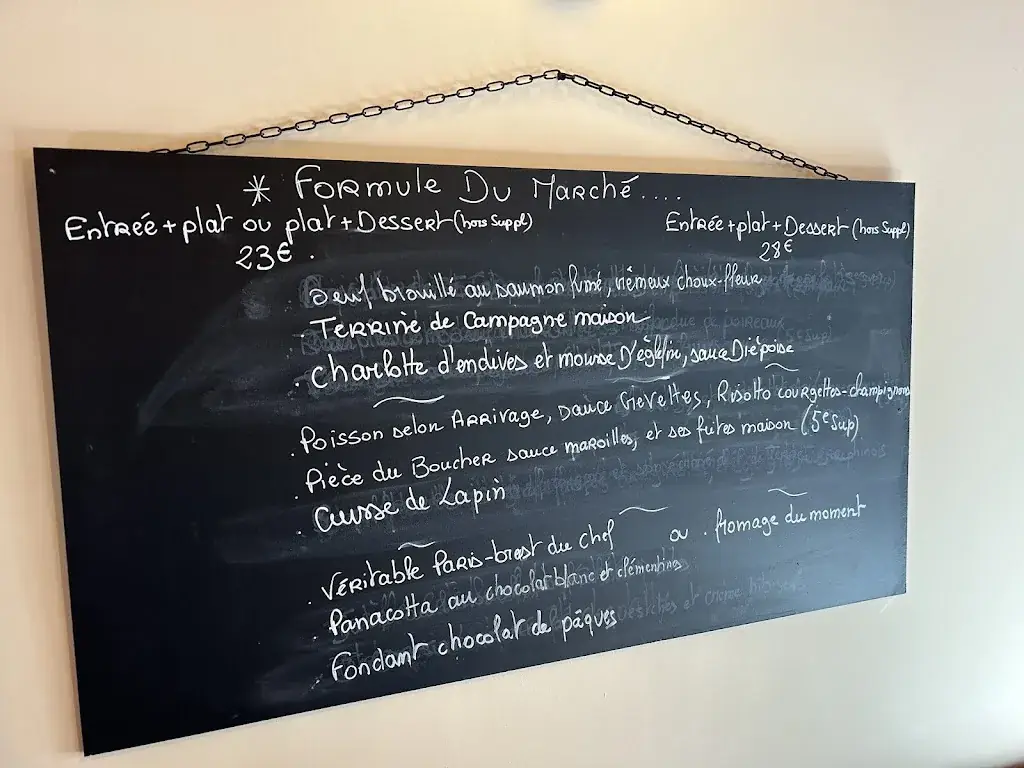 * Formule Du Marché....
Entrée + plat ou plat + Dessert (hors Suppl)
23€.
Entrée + plat + Dessert (hors Suppl)
28€
. Oeuf brouillé au saumon fumé, crémeux choux-fleur
. Terrine de Campagne maison
. Charlotte d'endives et mousse D'églefin, sauce Dieppoise
. Poisson selon Arrivage, sauce Crevettes, Risotto courgettes-champignons
. Pièce du Boucher sauce maroilles, et ses frites maison (5€ Sup)
. Cuisse de Lapin
. Véritable Paris-brest du chef ou . fromage du moment
. Panacotta au chocolat blanc et clémentines
. Fondant chocolat de pâques